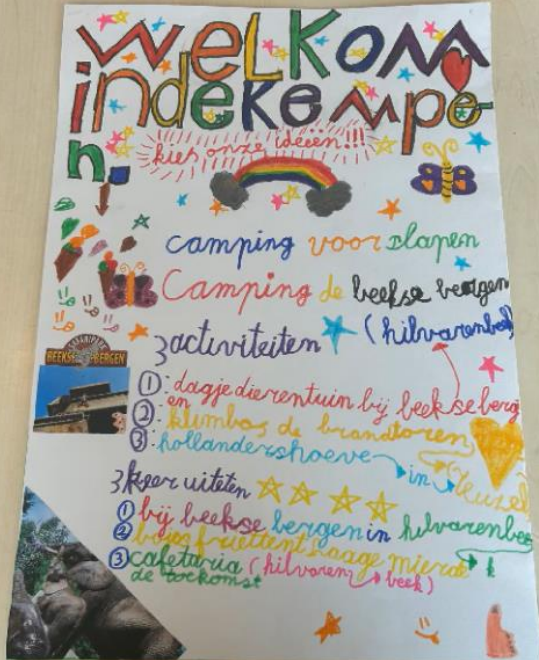 WELKOM
indekempe-
n.
kies onze ideeën!!!
camping voor slapen
Camping de beekse bergen
(hilvarenbeek
3activiteiten
SAFARIPARK
BEEKSE BERGEN
① : dagje dierentuin bij beekseberg
en
② : klimbos de brandtoren
③ : hollandershoeve in Reuzel
3keer uiteten
① bij beekse bergen in hilvarenbee
k
② frietTent Laage mierde
③ cafetaria (hilvaren beek)
de toekomst